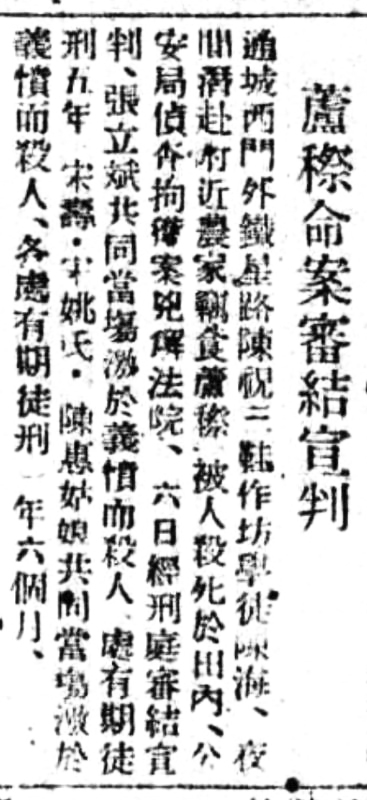 蘆穄命案審結宣判
通城西門外鐵星路陳祝三鞋作坊學徒陳海、夜
間潛赴附近農家竊食蘆穄、被人殺死於田內、公
安局偵查拘獲案兇解法院、六日經刑庭審結宣
判、張立斌共同當塲激於義憤而殺人、處有期徒
刑五年、宋壽・宋姚氏・陳惠姑娘共同當塲激於
義憤而殺人、各處有期徒刑一年六個月、